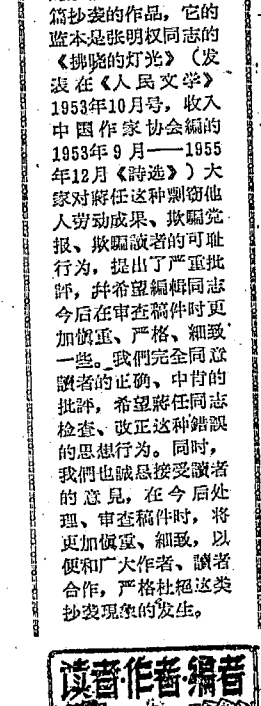 篇抄袭的作品，它的
蓝本是张明权同志的
《拂晓的灯光》（发
表在《人民文学》
1953年10月号，收入
中国作家协会编的
1953年9月——1955
年12月《詩选》）大
家对蔣任这种剽窃他
人劳动成果、欺騙党
报、欺騙讀者的可耻
行为，提出了严重批
評，幷希望編輯同志
今后在审查稿件时更
加愼重、严格、細致
一些。我們完全同意
讀者的正确、中肯的
批評，希望蔣任同志
检查、改正这种錯誤
的思想行为。同时，
我們也誠恳接受讀者
的意見，在今后处
理、审查稿件时，将
更加愼重、細致，以
便和广大作者、讀者
合作，严格杜絕这类
抄袭現象的发生。
读者·作者·编者